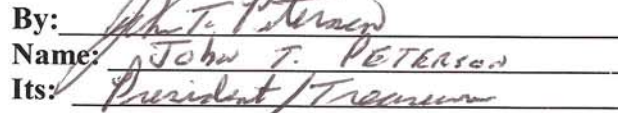 By: John T. Peterson
Name: John T. Peterson
Its: President/Treasurer